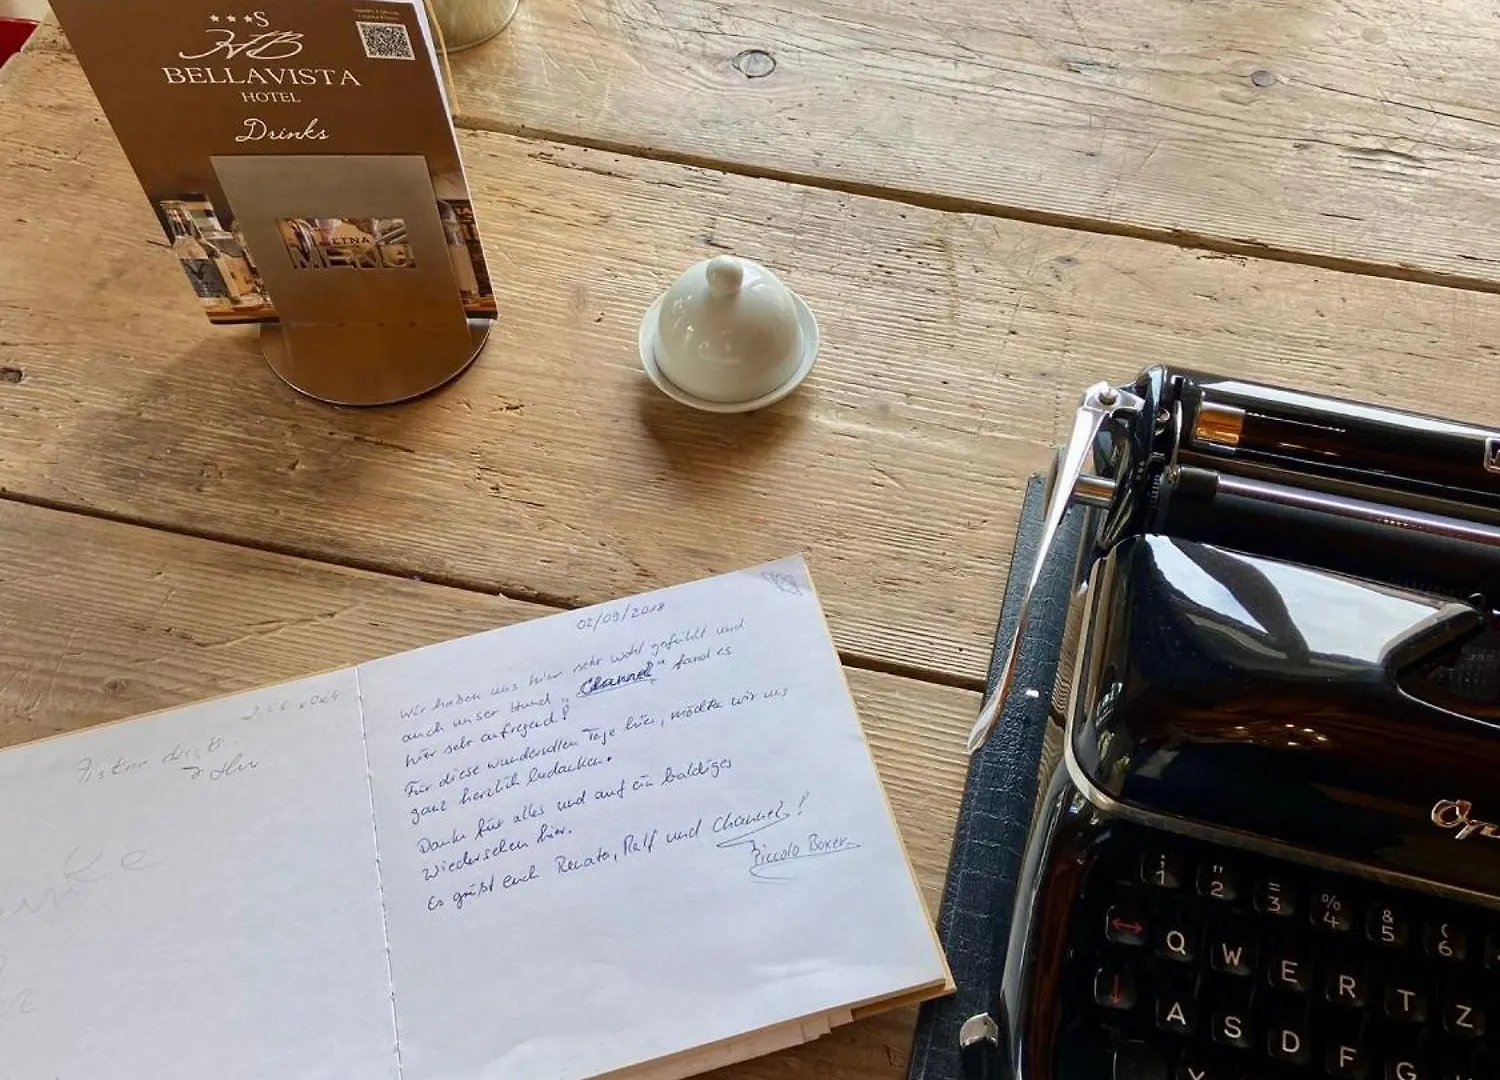 ★★★S
HB
BELLAVISTA
HOTEL
Drinks
ETNA
MENU
02/09/2018
Wir haben uns hier sehr wohl gefühlt und
auch unser Hund „Channel“ fand es
hier sehr aufregend!
Für diese wundervollen Tage hier, möchten wir uns
ganz herzlich bedanken.
Danke für alles und auf ein baldiges
Wiedersehen hier.
Es grüßt euch Renate, Ralf und Channel!
Piccolo Boxer
1 " 2 = 3 % 4 & 5 ( 6
Q W E R T Z
A S D F G
Y